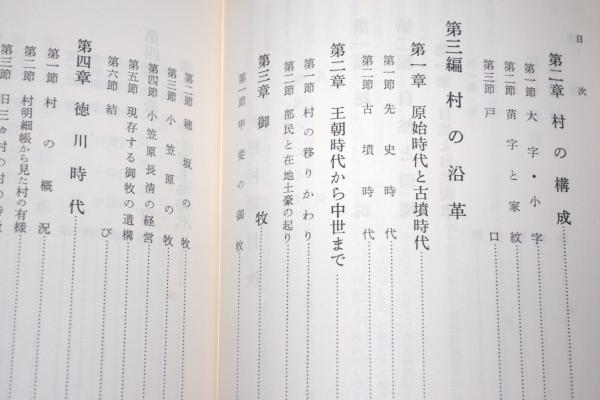 目次
第二章 村の構成
第一節 大字・小字
第二節 苗字と家紋
第三節 戸口
第三編 村の沿革
第一章 原始時代と古墳時代
第一節 先史時代
第二節 古墳時代
第二章 王朝時代から中世まで
第一節 村の移りかわり
第二節 部民と在地土豪の起り
第三章 御牧
第一節 甲斐の御牧
第二節 穂坂の牧
第三節 小笠原の牧
第四節 小笠原長清の経営
第五節 現存する御牧の遺構
第六節 結び
第四章 徳川時代
第一節 村の概況
第二節 村明細帳から見た村の有様
第三節 旧三ヵ村の村の